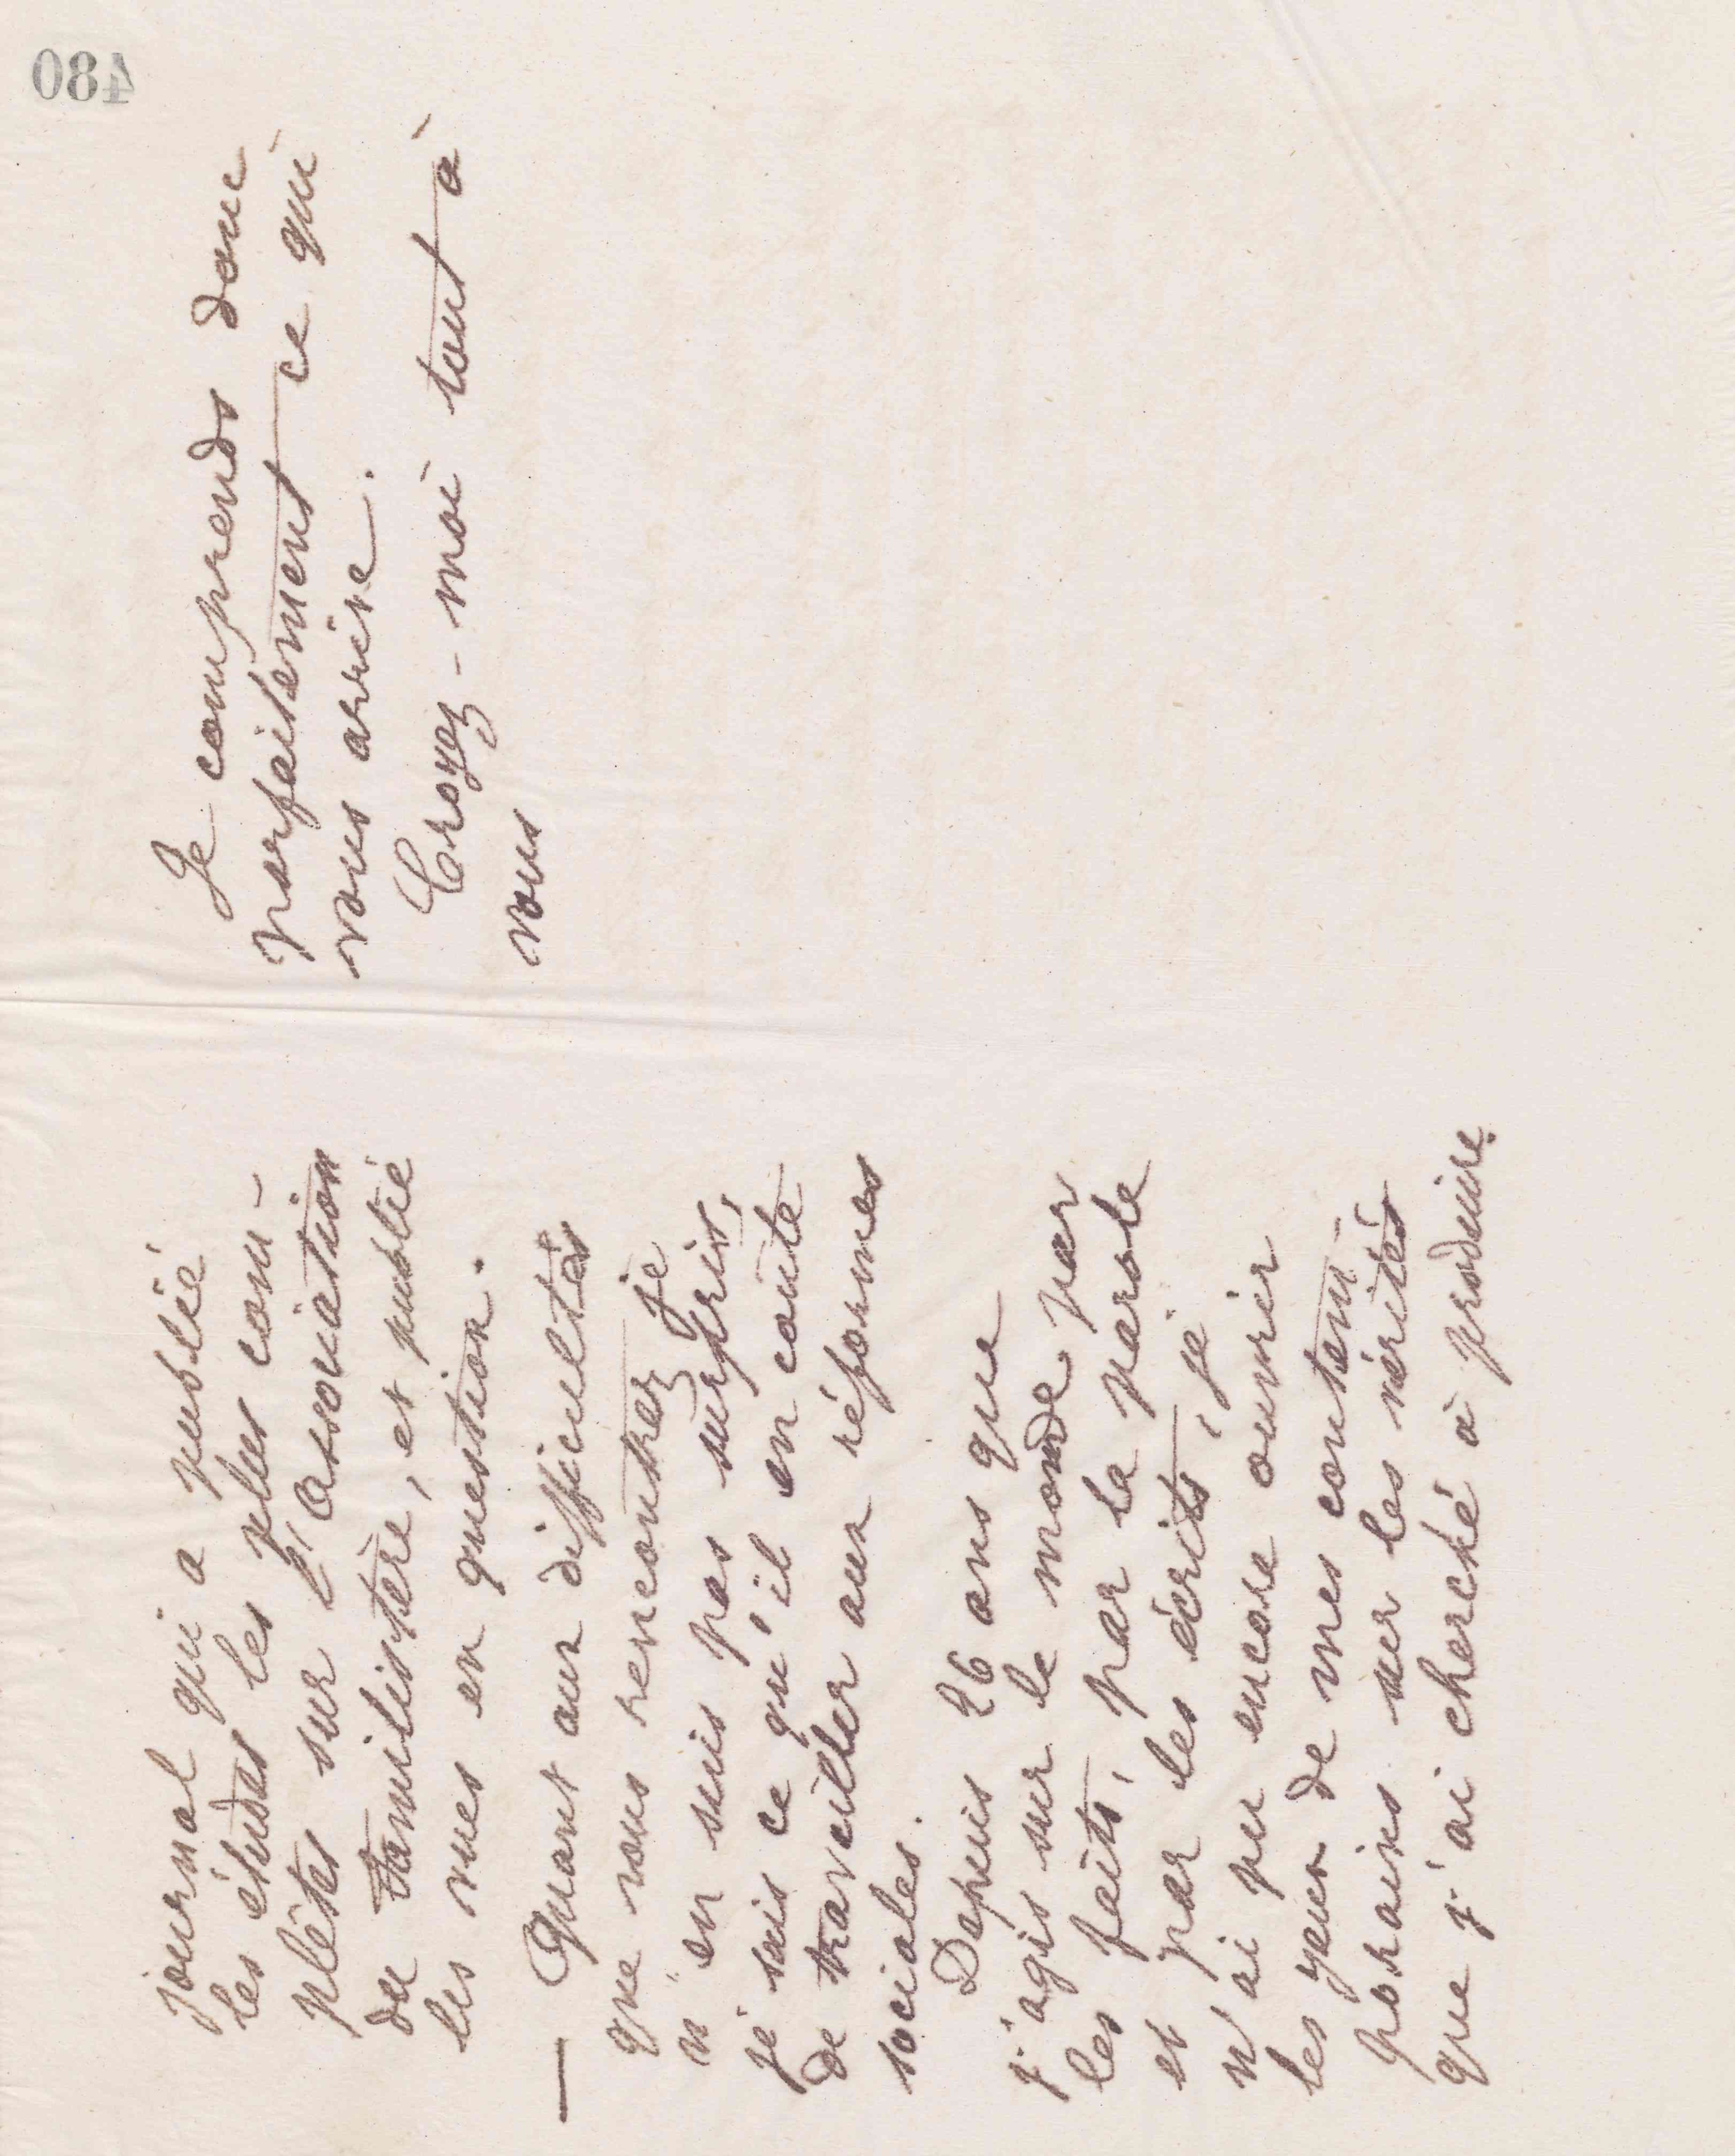 journal qui a publié
les études les plus com-
plètes sur l'association
du familistère, et publié
les vues en question.
— Quant aux difficultés
que vous rencontrez je
n'en suis pas surpris,
je sais ce qu'il en coûte
de travailler aux réformes
sociales.
Depuis 26 ans que
j'agis sur le monde par
les faits, par la parole
et par les écrits, je
n'ai pu encore ouvrir
les yeux de mes contem-
porains sur les vérités
que j'ai cherché à produire.
Je comprends donc
parfaitement ce qui
vous arrive.
Croyez-moi tout à
vous
480